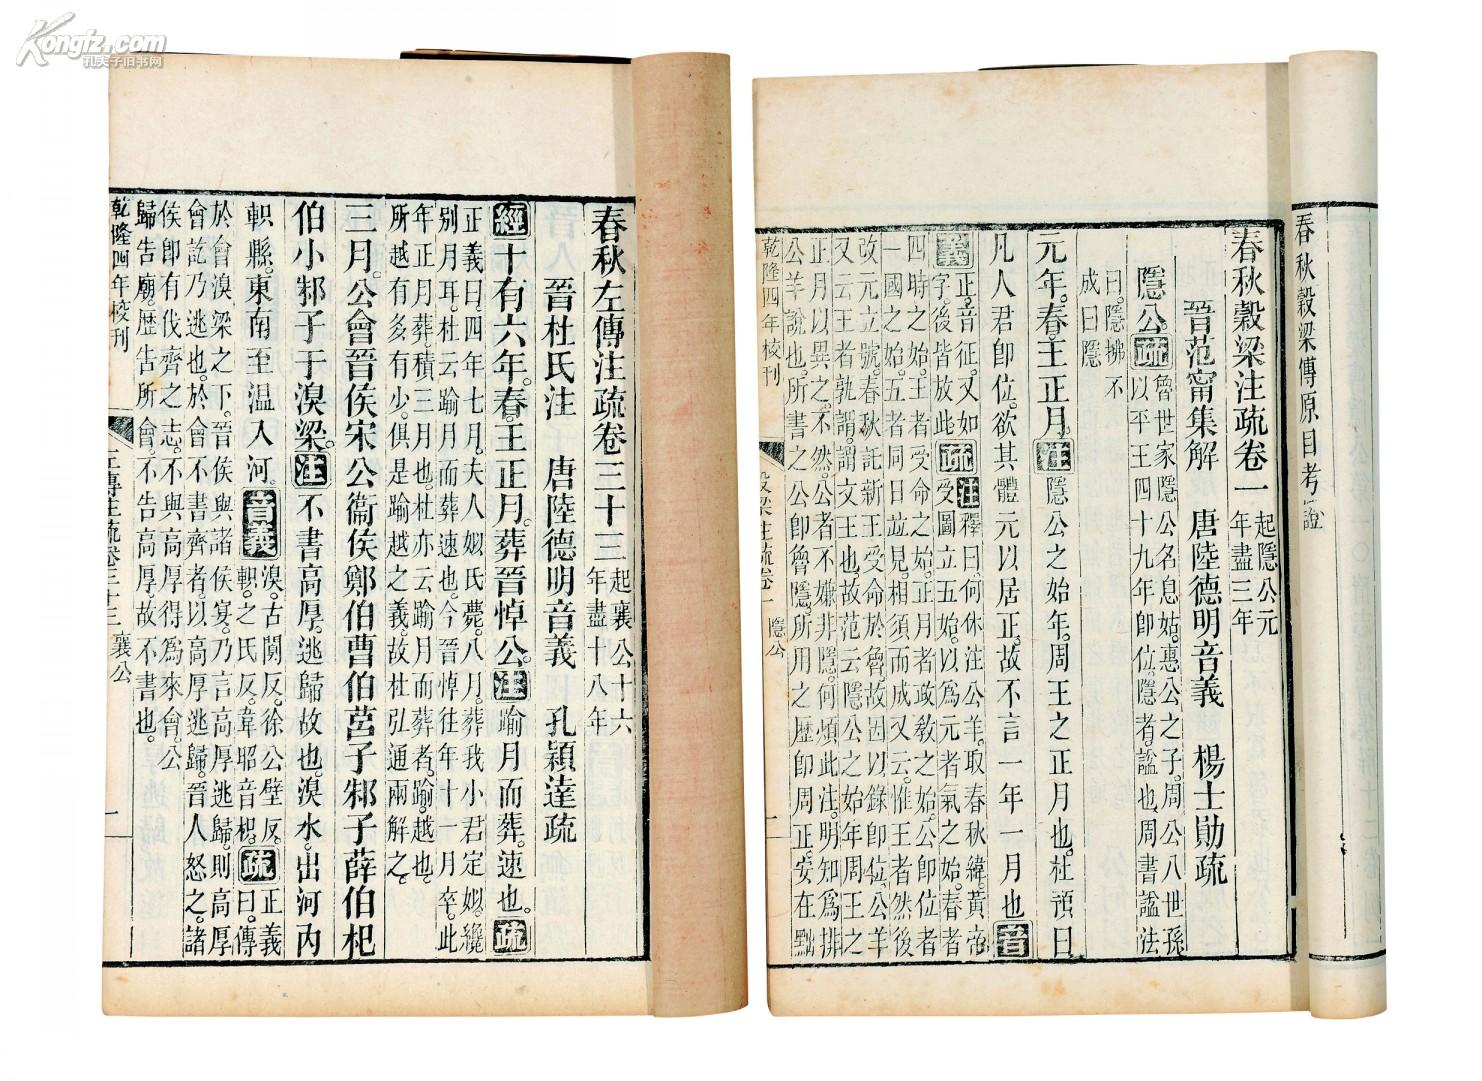 Kongfz.com
孔夫子旧书网
春秋穀梁傳原目考證
春秋穀梁注疏卷一
起隱公元
年盡三年
晉范甯集解 唐陸德明音義 楊士勛疏
隱公。疏
魯世家隱公名息姑。惠公之子。周公八世孫
以平王四十九年即位。隱者。謚也。周書謚法
曰。隱拂不
成曰隱
元年。春。王正月。注隱公之始年。周王之正月也。杜預曰
凡人君即位。欲其體元以居正。故不言一年一月也音
義
正音征。又如
字。後皆放此
疏
注釋曰。何休注公羊。取春秋緯。黃帝
受圖立五始。以爲元者氣之始。春者
四時之始。王者受命之始。正月者政敎之始。公即位者
一國之始。五者同日並見。相須而成。又云。惟王者然後
改元立號。春秋託新王受命於魯。故因以錄即位。公羊
又云。王者孰謂。謂文王也。故范云隱公之始年周王之
正月以異之。不然。公者不嫌非隱。何煩此注。明知爲排
公羊說也。所書之公即魯隱。所用之歷即周正。安在黜
乾隆四年校刊
穀梁注疏卷一 隱公
一
春秋左傳注疏卷三十三
起襄公十六
年盡十八年
晉杜氏注 唐陸德明音義 孔穎達疏
經十有六年。春。王正月。葬晉悼公。注踰月而葬。速也。疏
正義曰。四年七月。夫人姒氏薨。八月。葬我小君定姒。纔
別月耳。杜云踰月而葬速也。今晉悼往年十一月卒。此
年正月葬。積三月也。杜亦云踰月而葬者。踰。越也。
所越有多有少。俱是踰越之義。故杜弘通兩解之。
三月。公會晉侯宋公衞侯鄭伯曹伯莒子邾子薛伯杞
伯小邾子于溴梁。注不書高厚。逃歸故也。溴水。出河內
軹縣。東南至溫入河。音義
溴。古闃反。徐公壁反。
軹。之氏反。韋昭音枳。
疏
正義
曰。傳
於會溴梁之下。晉侯與諸侯宴。乃言高厚逃歸。則高厚
會訖乃逃也。於會不書齊者。以高厚逃歸。晉人怒之。諸
侯即有伐齊之志。不與高厚得爲來會。公
歸告廟。歷告所會。不告高厚。故不書也。
乾隆四年校刊
左傳注疏卷三十三 襄公
一